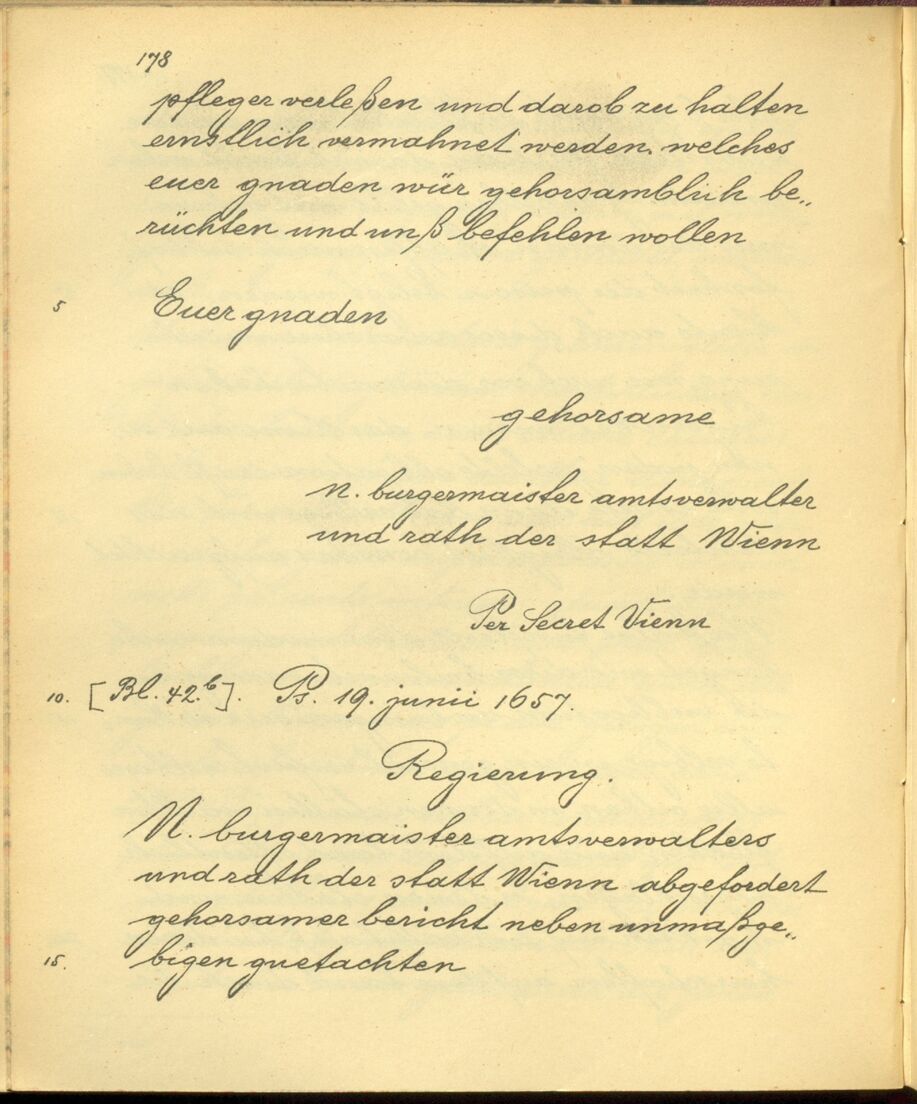 178
pfleger verleßen und darob zu halten
ernstlich vermahnet werden. welches
euer gnaden wür gehorsamblich be„
rüchten und unß befehlen wollen
5 Euer gnaden
gehorsame
N. burgermaister amtsverwalter
und rath der statt Wienn
Per Secret Vienn
10. [Bl. 42.b]. Ps. 19. junii 1657.
Regierung.
N. burgermaister amtsverwalters
und rath der statt Wienn abgefordert
gehorsamer bericht neben unmaßge„
15. bigen guetachten